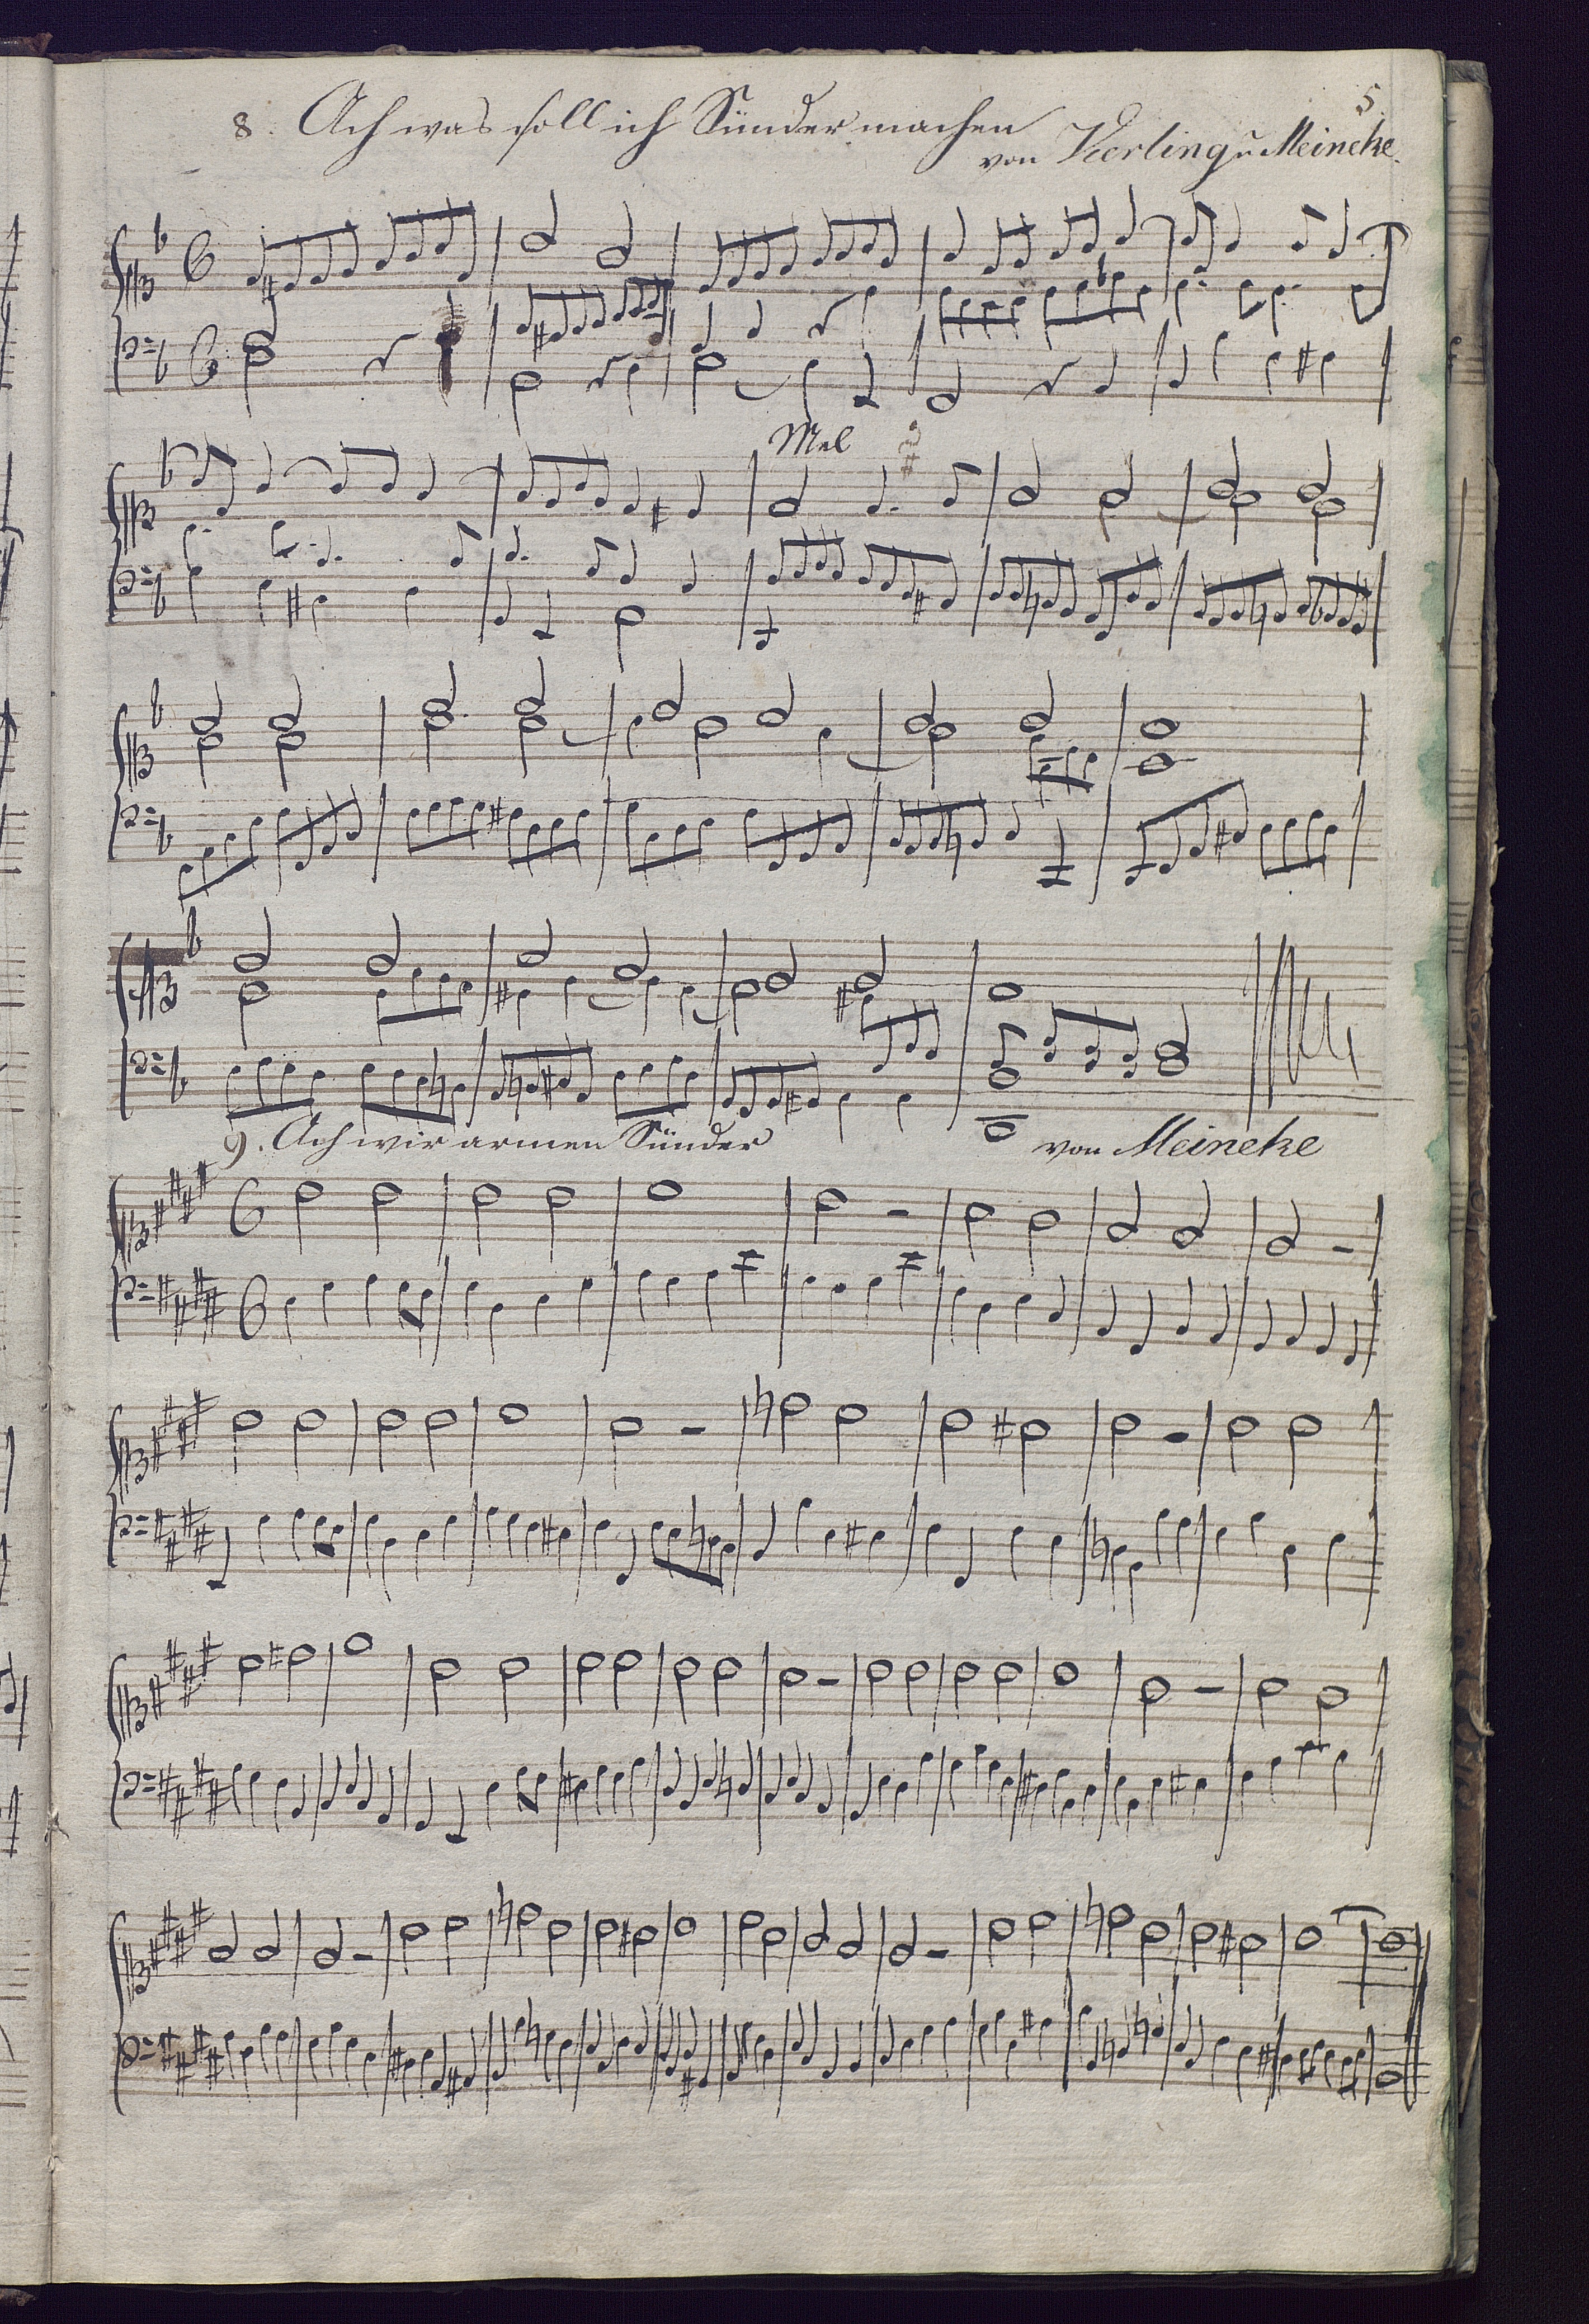 5.
8. Ach was soll ich Sünder machen
von Vierling u Meineke.
Mel
9. Ach wir armen Sünder von Meineke